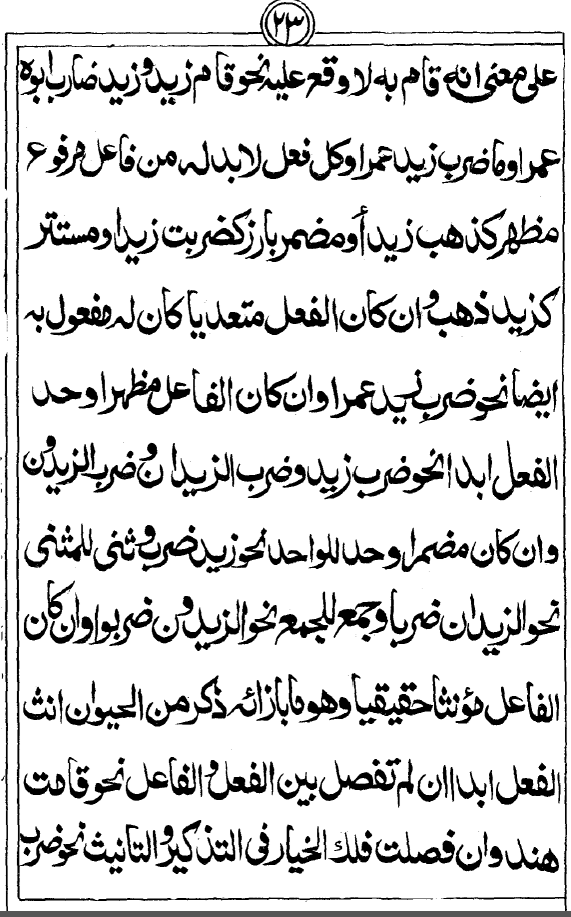 ٢٣
على معنى انه قام به لا وقع عليه نحو قام زيد وزيد ضارب ابوه
عمرا وما ضرب زيد عمرا وكل فعل لابد له من فاعل مرفوع
مظهر كذهب زيد أو مضمر بارز كضربت زيدا او مستتر
كزيد ذهب وان كان الفعل متعديا كان له مفعول به
ايضا نحو ضرب زيد عمرا وان كان الفاعل مظهرا وحد
الفعل ابدا نحو ضرب زيد وضرب الزيدان وضرب الزيدون
وان كان مضمرا وحد للواحد نحو زيد ضرب وثنى للمثنى
نحو الزيدان ضربا وجمع للجمع نحو الزيدون ضربوا وان كان
الفاعل مؤنثا حقيقيا وهو ما بازائه ذكر من الحيوان انث
الفعل ابدا ان لم تفصل بين الفعل والفاعل نحو قامت
هند وان فصلت فلك الخيار فى التذكير والتانيث نحو ضرب